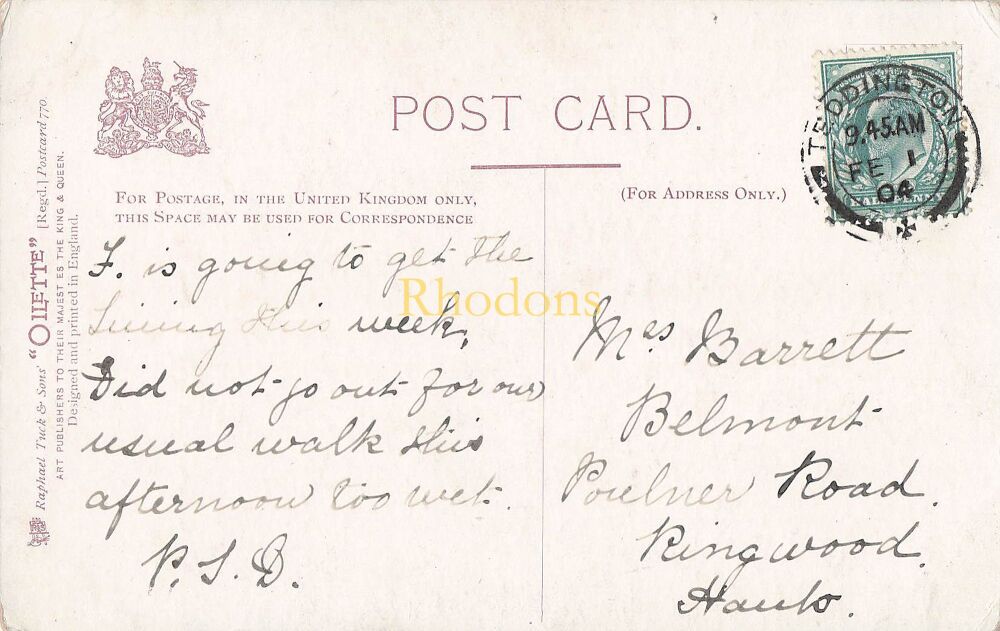 POST CARD.
FOR POSTAGE, IN THE UNITED KINGDOM ONLY,
THIS SPACE MAY BE USED FOR CORRESPONDENCE
(FOR ADDRESS ONLY.)
Raphael Tuck & Sons' "OILETTE" [Regd.] Postcard 770.
ART PUBLISHERS TO THEIR MAJESTIES THE KING & QUEEN.
Designed and printed in England.
TEDDINGTON
9.45AM
FE 1
04
HALFPENNY
F. is going to get the
lining this week,
Did not go out for our
usual walk this
afternoon too wet.
P.S.D.
Mrs Barrett
Belmont
Poulner Road.
Ringwood.
Hants.
Rhodons